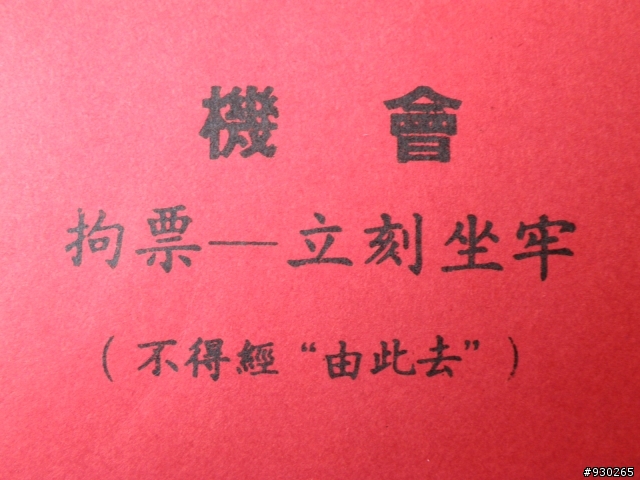 機 會
拘票—立刻坐牢
(不得經“由此去”)
#930265